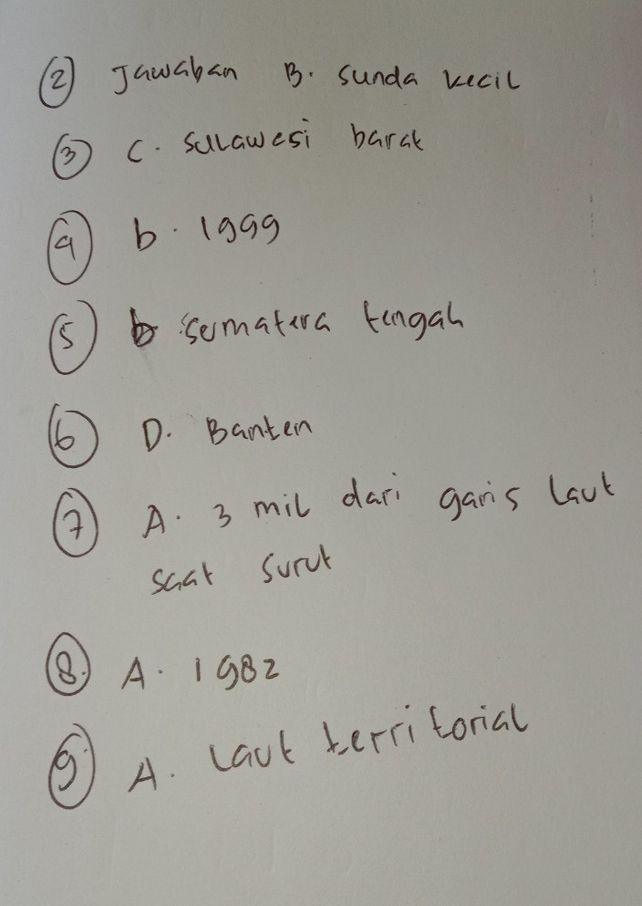 2 Jawaban B. Sunda kecil
3 C. Sulawesi barat
4 b. 1999
5 b sumatera tengah
6 D. Banten
7 A. 3 mil dari garis laut
saat surut
8. A. 1982
9. A. Laut territorial